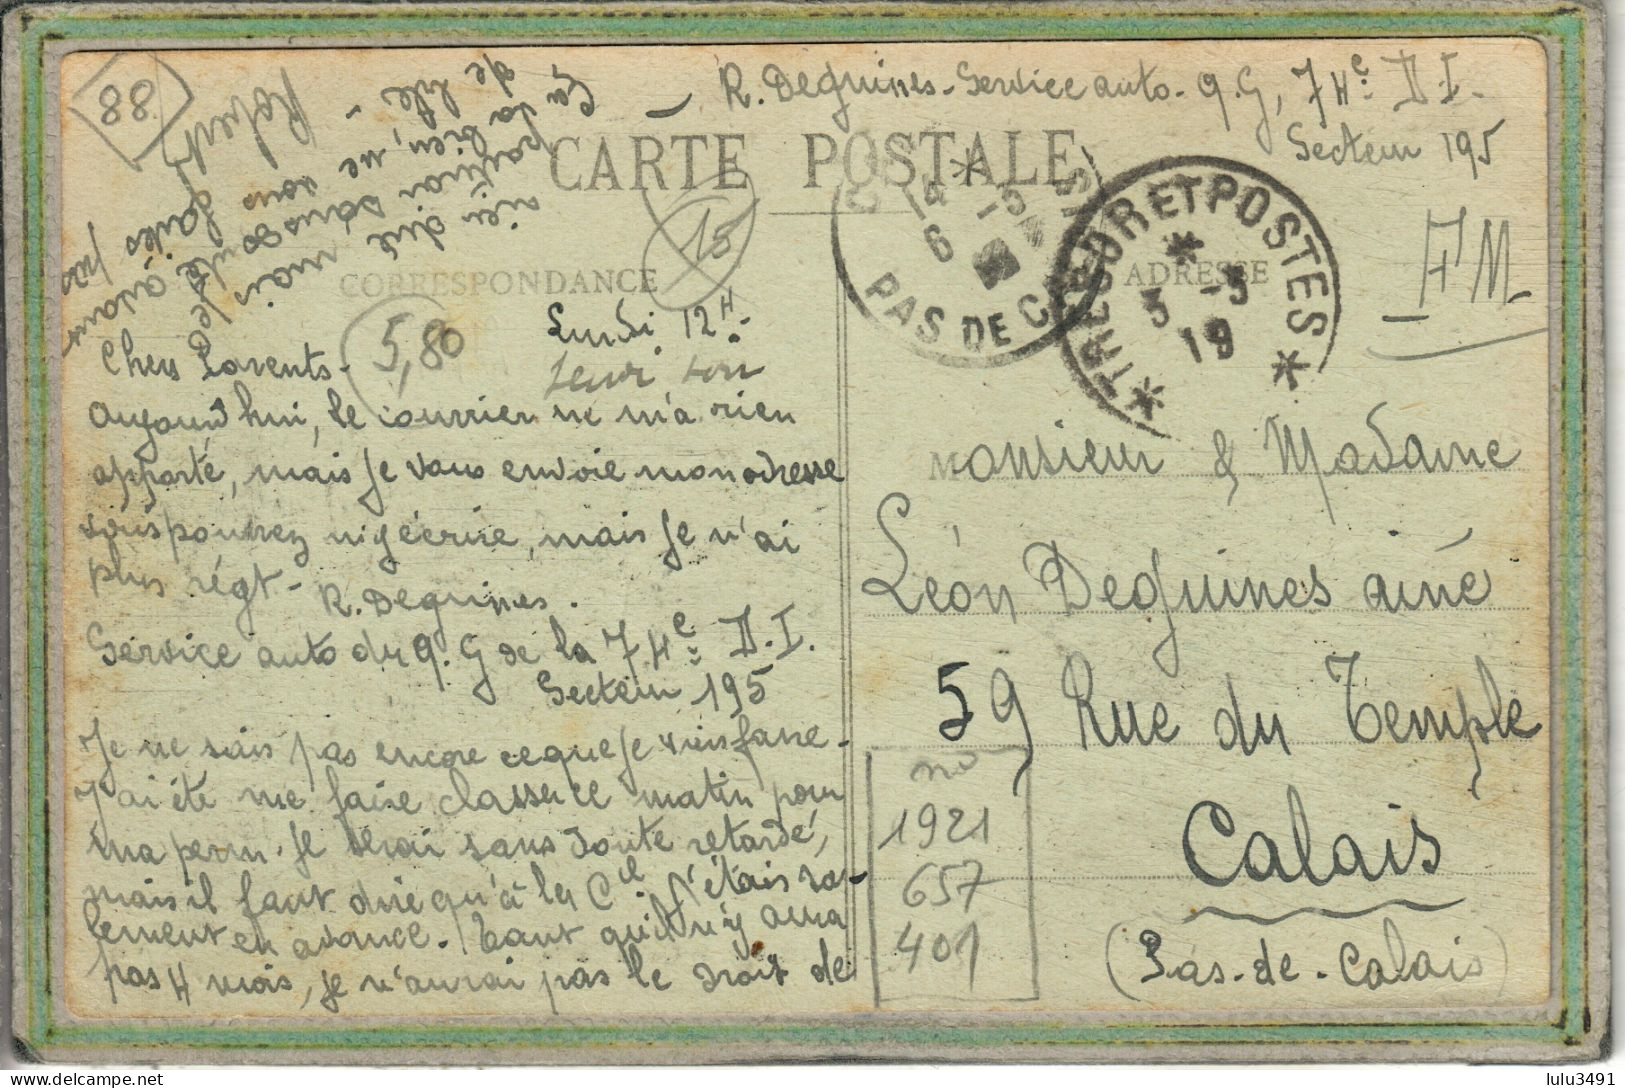 R. Deguines - Service auto - Q.G, 74e D.I.
Secteur 195
88
CARTE POSTALE
CORRESPONDANCE
ADRESSE
18
5,80
F M
TRESOR ET POSTES
5 -5
19
PAS DE C
Lundi 12H -
Chers Parents -
Aujourd'hui, le courrier ne m'a rien
apporté, mais je vous envoie mon adresse
vous pourrez m'écrire, mais je n'ai
plus régt - R. Deguines.
Service auto du Q.G de la 74e D.I.
Secteur 195
Je ne sais pas encore ce que je vais faire -
J'ai été me faire classer ce matin pour
ma perm. je serai sans doute retardé,
mais il faut dire qu'à la Cie j'étais
en avance. Tant qu'il n'y aura
pas 4 mois, je n'aurai pas le droit de
rien dire mais
sans doute
Robert
Monsieur & Madame
Léon Deguines ainé
59 Rue du Temple
Calais
(Pas-de-Calais)
no
1921
657
401
delcampe.net
lulu3491